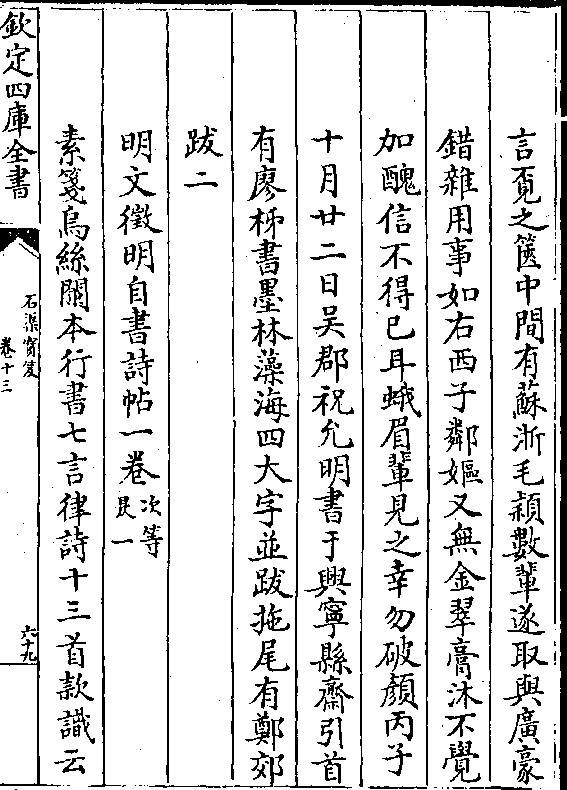 言覔之篋中間有蘇浙毛穎數輩遂取與廣豪
錯雜用事如右西子鄰嫗又無金翠膏沐不覺
加醜信不得已耳蛾眉輩見之幸勿破顏丙子
十月廿二日吳郡祝允明書于興寧縣齋引首
有廖梯書墨林藻海四大字並跋拖尾有鄭郊
跋二
明文徵明自書詩帖一卷次等艮一
素箋烏絲闌本行書七言律詩十三首款識云
欽定四庫全書
石渠寶笈
卷十三
六十九